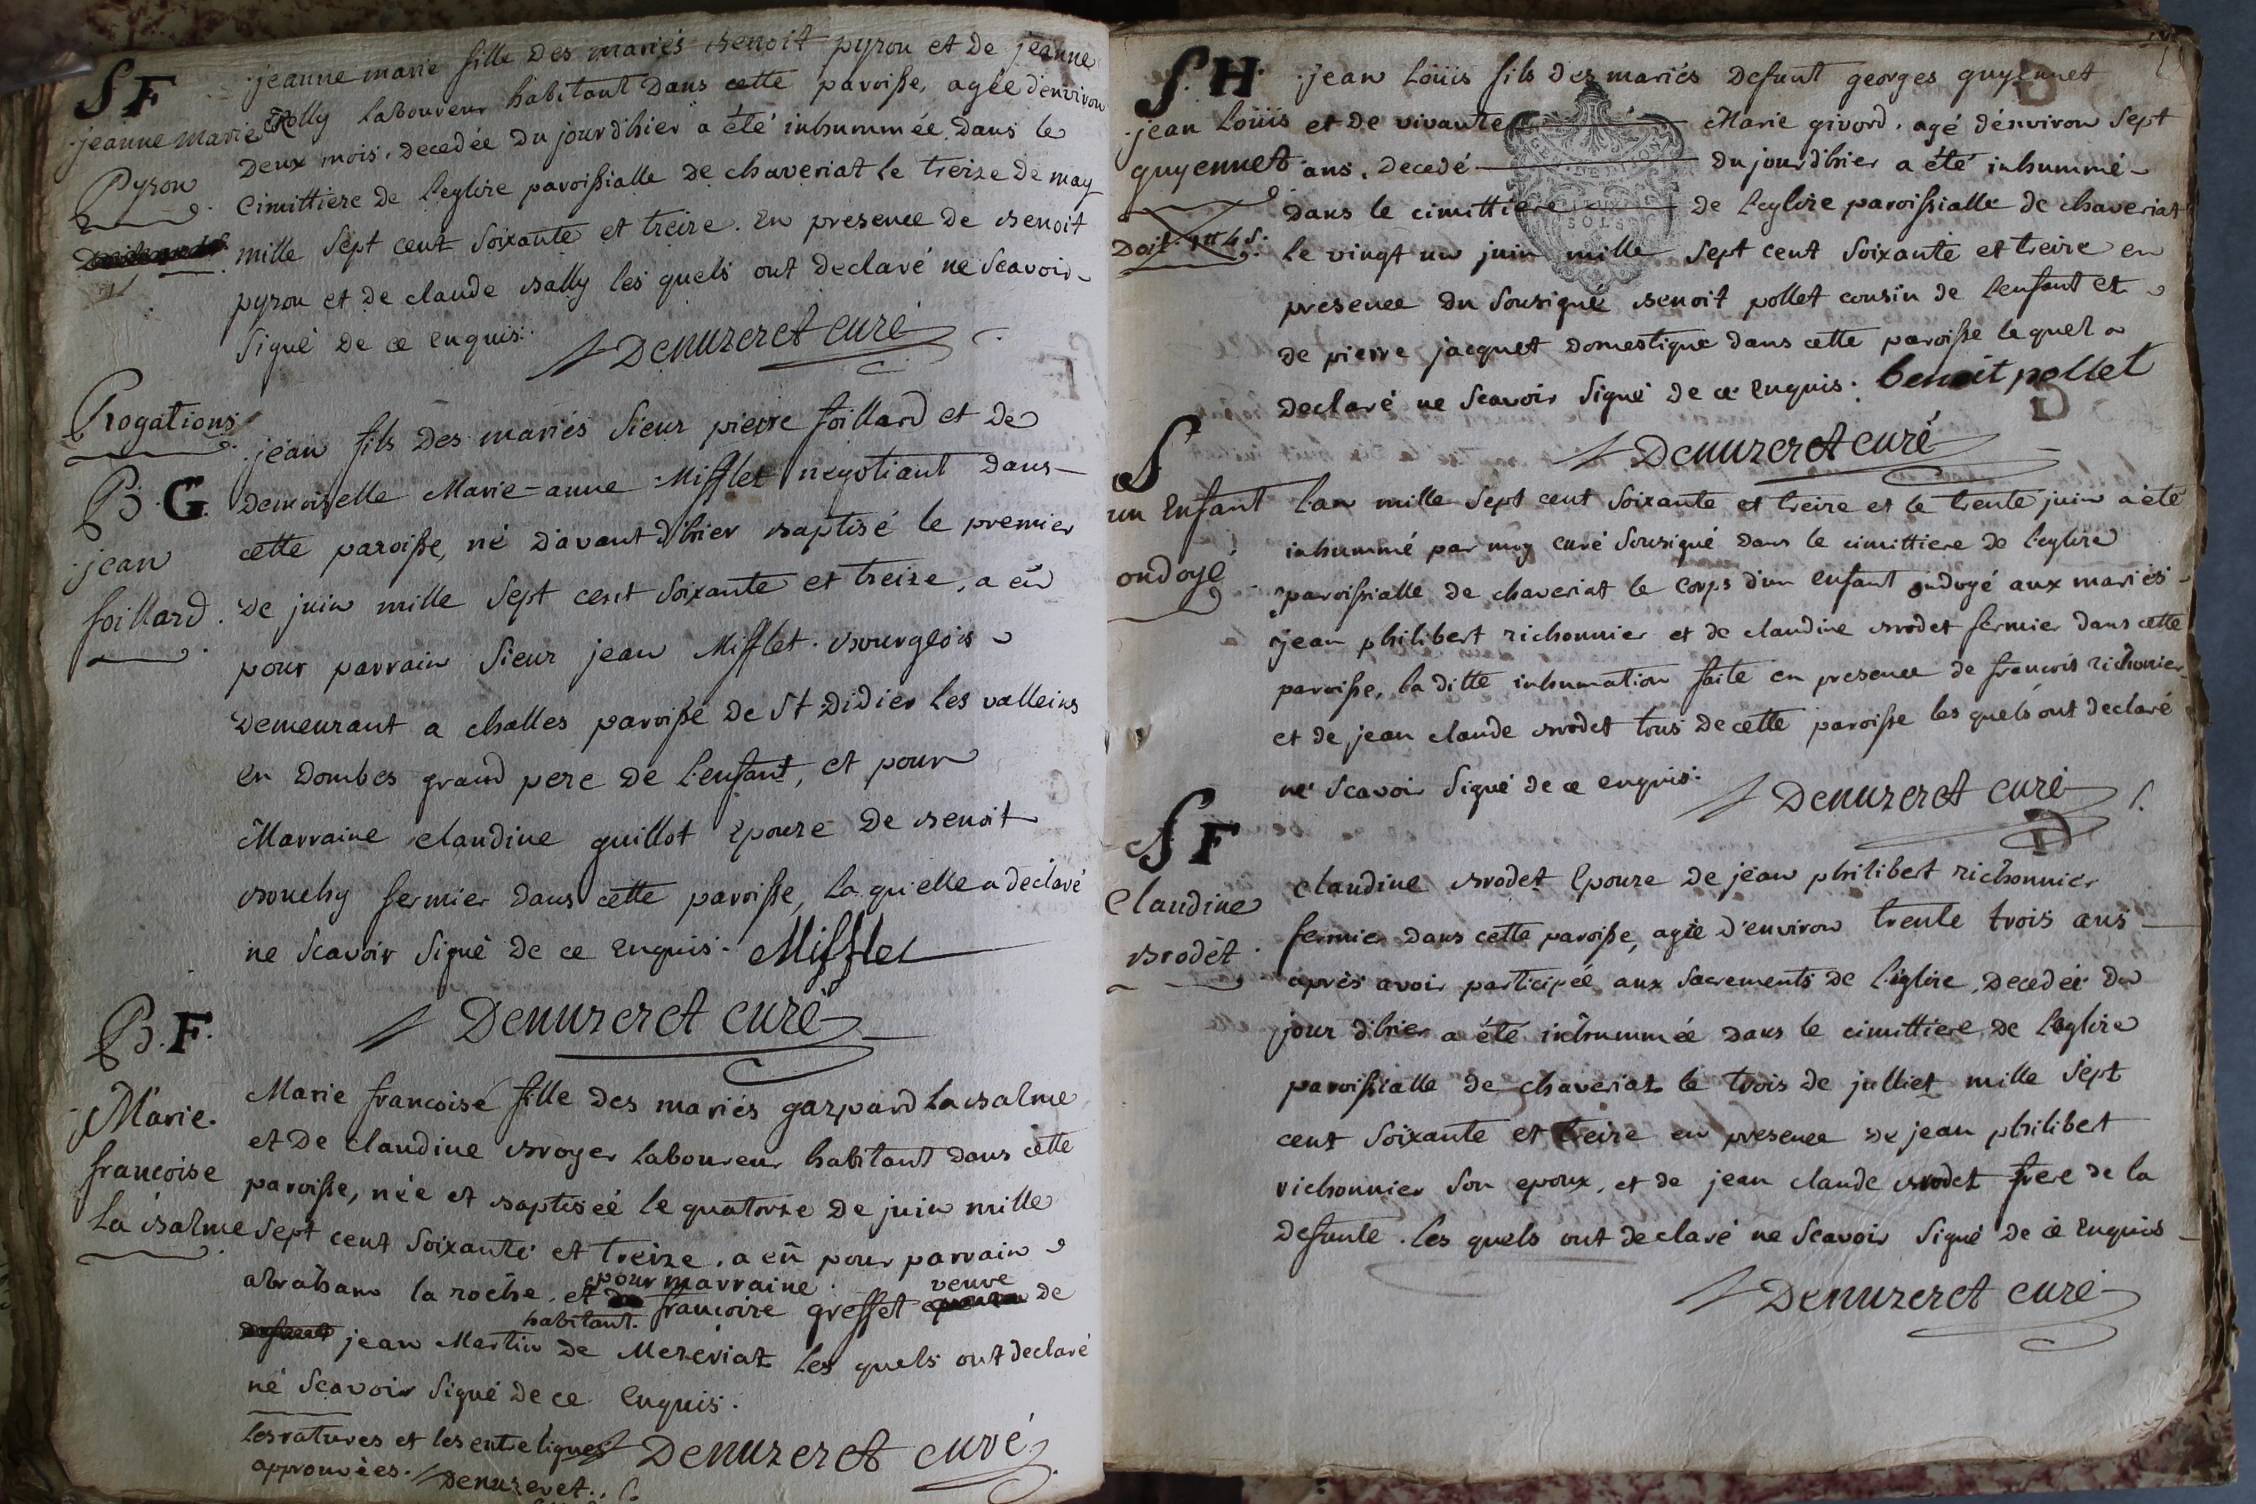 S F
jeanne marie
Pyron
jeanne marie fille des mariés benoit pyron et de jeanne
Rolly laboureur habitant dans cette paroisse, agée d'environ
deux mois, decedée du jour d'hier a été inhummée dans le
cimittiere de l'eglise paroissialle de chaveriat le treize de may
mille sept cent soixante et treize. en presence de benoit
pyron et de claude bally les quels ont declaré ne scavoir
signé de ce enquis.
Denuzeret curé
Rogations
B. G.
jean
foillard
jean fils des mariés sieur pierre foillard et de
demoiselle Marie-anne Mifflet negotiant dans
cette paroisse, né d'avant d'hier baptisé le premier
de juin mille sept cent soixante et treize, a eû
pour parrain sieur jean Mifflet bourgeois
demeurant a challes paroisse de St didier les valleins
en dombes grand pere de l'enfant, et pour
Marraine claudine guillot epouze de benoit
bouchy fermier dans cette paroisse, la qu'elle a declaré
ne scavoir signé de ce enquis. Mifflet
Denuzeret curé
B. F.
Marie
francoise
la balme
Marie francoise fille des mariés gaspard La balme
et de claudine broyer laboureur habitant dans cette
paroisse, née et baptiseé le quatorze de juin mille
sept cent soixante et treize, a eû pour parrain
abraham la roche, et pour marraine francoise gresset veuve de
habitant
jean Martin de Mezeriat les quels ont declaré
né scavoir signé de ce enquis.
les ratures et les entre lignes
approuvées. Denuzeret.
Denuzeret curé
S. H.
jean Loüis
guyennet
Doit
jean Loüis fils des mariés defunt georges guyennet
et de vivante Marie givord, agé d'environ sept
ans, decedé du jour d'hier a été inhummé
dans le cimittiere de l'eglise paroissialle de chaveriat
le vingt un juin mille sept cent soixante et treize en
presence du sousigné benoit pollet cousin de l'enfant et
de pierre jacquet domestique dans cette paroisse le quel a
declaré ne scavoir signé de ce enquis. benoit pollet
Denuzeret curé
S
un enfant
ondoyé
l'an mille sept cent soixante et treize et le trente juin a été
inhummé par moy curé sousigné dans le cimittiere de l'eglise
paroissialle de chaveriat le corps d'un enfant ondoyé aux mariés
jean philibert richonnier et de claudine brodet fermier dans cette
paroisse, la ditte inhumation faite en presence de francois richonier
et de jean claude brodet tous de cette paroisse les quels ont declaré
ne scavoir signé de ce enquis.
Denuzeret curé
S F
Claudine
brodet
claudine brodet epouze de jean philibert richonnier
fermier dans cette paroisse, agée d'environ trente trois ans
après avoir participée aux sacrements de l'eglise, decedée du
jour d'hier a été inhummée dans le cimittiere de l'eglise
paroissialle de chaveriat le trois de julliet mille sept
cent soixante et treize en presence de jean philibert
richonnier son epoux, et de jean claude brodet frere de la
defunte. les quels ont declaré ne scavoir signé de ce enquis
Denuzeret curé